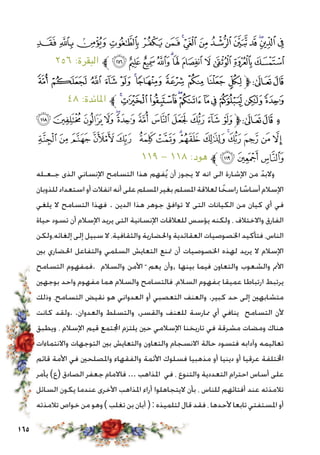 فِي الدِّينِ قَد تَّبَيَّنَ الرُّشْدُ مِنَ الْغَيِّ فَمَن يَكْفُرْ بِالطَّاغُوتِ وَيُؤْمِن بِاللَّهِ فَقَدِ
اسْتَمْسَكَ بِالْعُرْوَةِ الْوُثْقَىٰ لَا انفِصَامَ لَهَا وَاللَّهُ سَمِيعٌ عَلِيمٌ ﴿٢٥٦﴾ ﴾ البقرة: ٢٥٦
قَالَ تَعَالَىٰ: ﴿ لِكُلٍّ جَعَلْنَا مِنكُمْ شِرْعَةً وَمِنْهَاجًا وَلَوْ شَاءَ اللَّهُ لَجَعَلَكُمْ أُمَّةً
وَاحِدَةً وَلَٰكِن لِّيَبْلُوَكُمْ فِي مَا آتَاكُمْ فَاسْتَبِقُوا الْخَيْرَاتِ ﴾ المائدة: ٤٨
قَالَ تَعَالَىٰ: ﴿ وَلَوْ شَاءَ رَبُّكَ لَجَعَلَ النَّاسَ أُمَّةً وَاحِدَةً وَلَا يَزَالُونَ مُخْتَلِفِينَ ﴿١١٨﴾
إِلَّا مَن رَّحِمَ رَبُّكَ وَلِذَٰلِكَ خَلَقَهُمْ وَتَمَّتْ كَلِمَةُ رَبِّكَ لَأَمْلَأَنَّ جَهَنَّمَ مِنَ الْجِنَّةِ
وَالنَّاسِ أَجْمَعِينَ ﴿١١٩﴾ ﴾ هود: ١١٨ - ١١٩
ولابدّ من الإشارة الى انه لا يجوز أن يُفهم هذا التسامح الإنساني الذي جعله
الإسلام أساسًا راسخًا لعلاقة المسلم بغير المسلم على أنه انفلات أو استعداد للذوبان
في أي كيان من الكيانات التى لا توافق جوهر هذا الدين . فهذا التسامح لا يلغي
الفارق والاختلاف ، ولكنه يؤسس للعلاقات الإنسانية التى يريد الإسلام أن تسود حياة
الناس، فتأكيد الخصوصيات العقائدية والحضارية والثقافية، لا سبيل إلى إلغائه، ولكن
الإسلام لا يريد لهذه الخصوصيات أن تمنع التعايش السلمي والتفاعل الحضاري بين
الأمم والشعوب والتعاون فيما بينها ،وأن يعم، الأمن والسلام ،فمفهوم التسامح
يرتبط ارتباطا عميقا بمفهوم السلام، فالتسامح والسلام هما مفهوم واحد بوجهين
متشابهين إلى حد كبير، والعنف التعصبي أو العدواني هو نقيض التسامح، وذلك
لأن التسامح ينافي أي ممارسة للعنف والقسر، والتسلط والعدوان، .ولقد كانت
هناك ومضات مشرقة في تاريخنا الإسلامي حين يلتزم المجتمع قيم الإسلام . ويطبق
تعاليمه وآدابه فتسود حالة الانسجام والتعاون والتعايش بين التوجهات والانتماءات
المختلفة عرقيا أو دينيا أو مذهبيا فسلوك الأئمة والفقهاء والمصلحين في الأمة قائم
على أساس احترام التعددية والتنوع . في المذاهب ... فالامام جعفر الصادق (ع) يأمر
تلامذته عند أفتائهم للناس . بأن لايتجاهلوا آراء المذاهب الأخرى عندما يكون السائل
أو المستفتي تابعا لأحدها . فقد قال لتلميذه : ( أبان بن تغلب ) وهو من خواص تلامذته
١٦٥